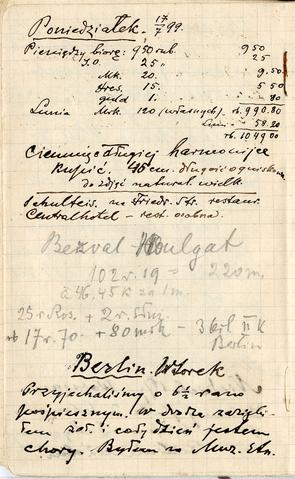 Poniedziałek. 17/7 99.
Pieniędzy biorę: 950 rub. 950
I.O. 25 „ 25
Mk. 20. 9.50
Hres. 15. 5 50
guld 1. 80
Lunia Mrk. 120 (własnych) rb. 990.80
58.20
rb. 1049 00
Ciemnię długiej harmonijce
Kupić. 46 cm. długość
do zdjęć natural. wielk.
na Friedr. Str. restaur.
Centralhotel – rest. osobna.
Bezval Houlgat
102 r. 19 = 220 m.
à 46,45 k za 1 m.
25 r Ros. + 2 r. służ.
rb 17 r. 70 + 80 mrk – 3 bil II K
Berlin
Berlin. Wtorek
Przyjechaliśmy o 6½ rano
pośpiesznym. w drodze
żoł. i cały dzień jestem
chory. Byłem w Muz. Etn.